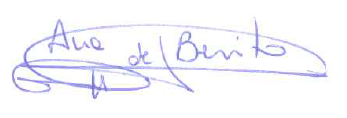 Ana de Benito